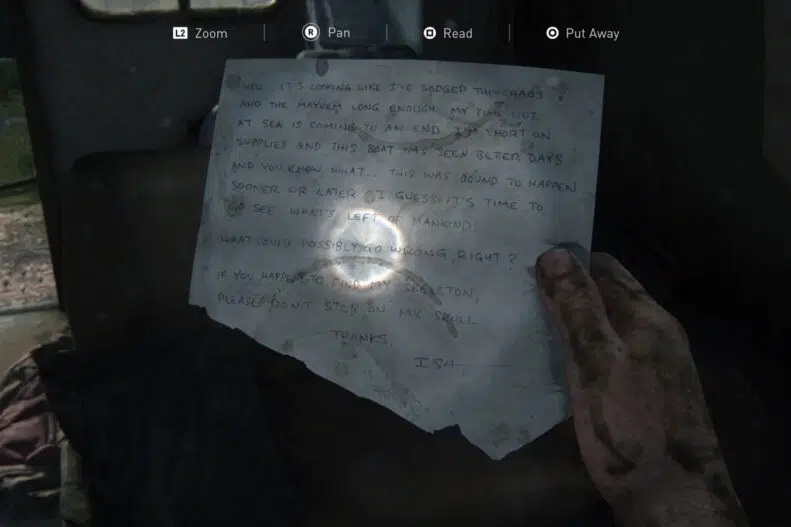 L2 Zoom R Pan Read Put Away
WELL.. IT'S LOOKING LIKE I'VE DODGED THE CHAOS
AND THE MAYHEM LONG ENOUGH. MY TIME OUT
AT SEA IS COMING TO AN END. I'M SHORT ON
SUPPLIES AND THIS BOAT HAS SEEN BETTER DAYS
AND YOU KNOW WHAT... THIS WAS BOUND TO HAPPEN
SOONER OR LATER. I GUESS IT'S TIME TO
GO SEE WHAT'S LEFT OF MANKIND.
WHAT COULD POSSIBLY GO WRONG, RIGHT?
IF YOU HAPPEN TO FIND MY SKELETON,
PLEASE DON'T STEP ON MY SKULL
THANKS.
ISH